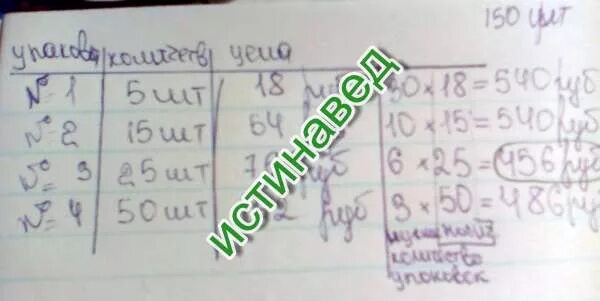 150 шт
упаковка количеств цена
№ 1 5 шт 18 руб 30 × 18 = 540 руб
№ 2 15 шт 54 10 × 15 = 540 руб
№ 3 25 шт 76 руб 6 × 25 = 456 руб
№ 4 50 шт руб 3 × 50 = 486 руб
количество
упаковок
истинавед